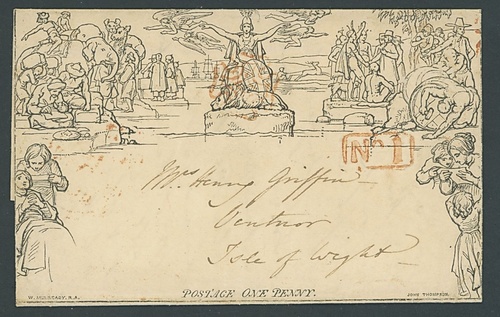 No. 1
Mrs. Henry Griffin
Ventnor
Isle of Wight
POSTAGE ONE PENNY.
W. MULREADY, R.A.
JOHN THOMPSON.